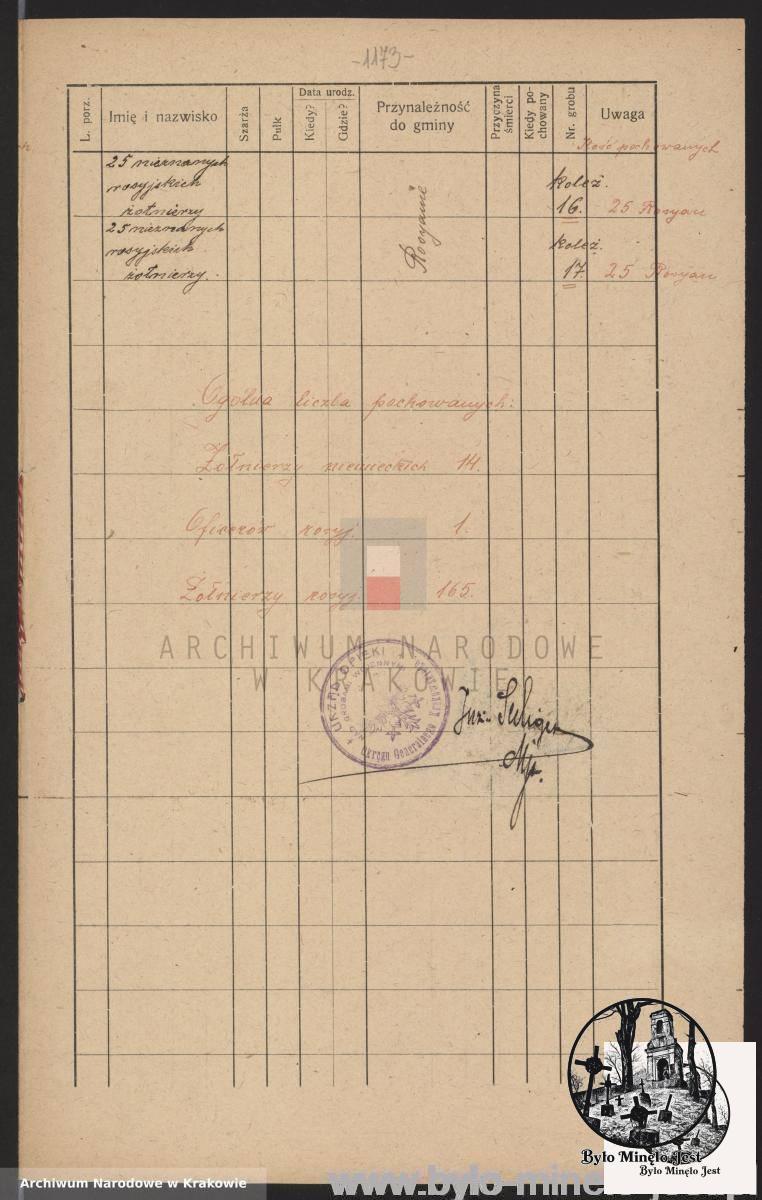 -1173-
L. porz.
Imię i nazwisko
Szarża
Pułk
Data urodz.
Kiedy?
Gdzie?
Przynależność
do gminy
Przyczyna
śmierci
Kiedy po-
chowany
Nr. grobu
Uwaga
Ilość pochowanych
25 nieznanych
rosyjskich
żołnierzy
Rosyanie
kolez.
16.
25 Rosyan
25 nieznanych
rosyjskich
żołnierzy.
kolez.
17.
25 Rosyan
Ogólna liczba pochowanych:
Żołnierzy niemieckich 14.
Oficerów rosyj. 1.
Żołnierzy rosyj. 165.
ARCHIWUM NARODOWE
W KRAKOWIE
URZĄD OPIEKI
NAD GROBAMI WOJENNYMI
Okręgu Generalnego
Inż.
Mjr.
Było Minęło Jest
Było Minęło Jest
Archiwum Narodowe w Krakowie